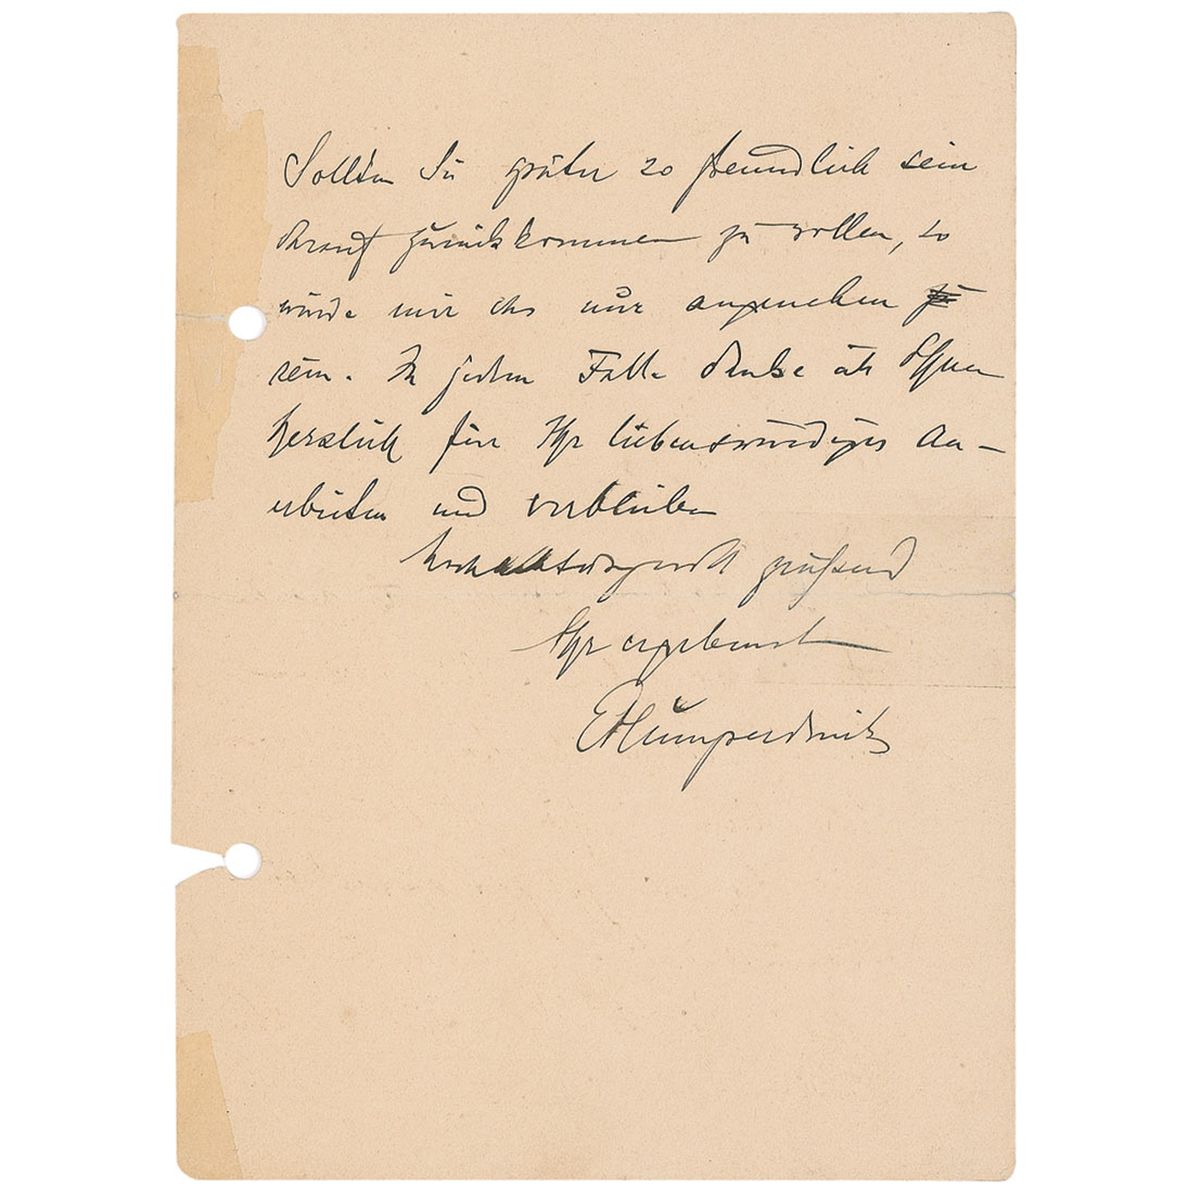 Sollten Sie später so freundlich sein
darauf zurückkommen zu wollen, so
würde mir das nur angenehm zu
sein. In jedem Falle danke ich Ihnen
herzlich für Ihr liebenswürdiges An-
erbieten und verbleibe
hochachtungsvoll grüßend
Ihr ergebenst
EHumperdinck